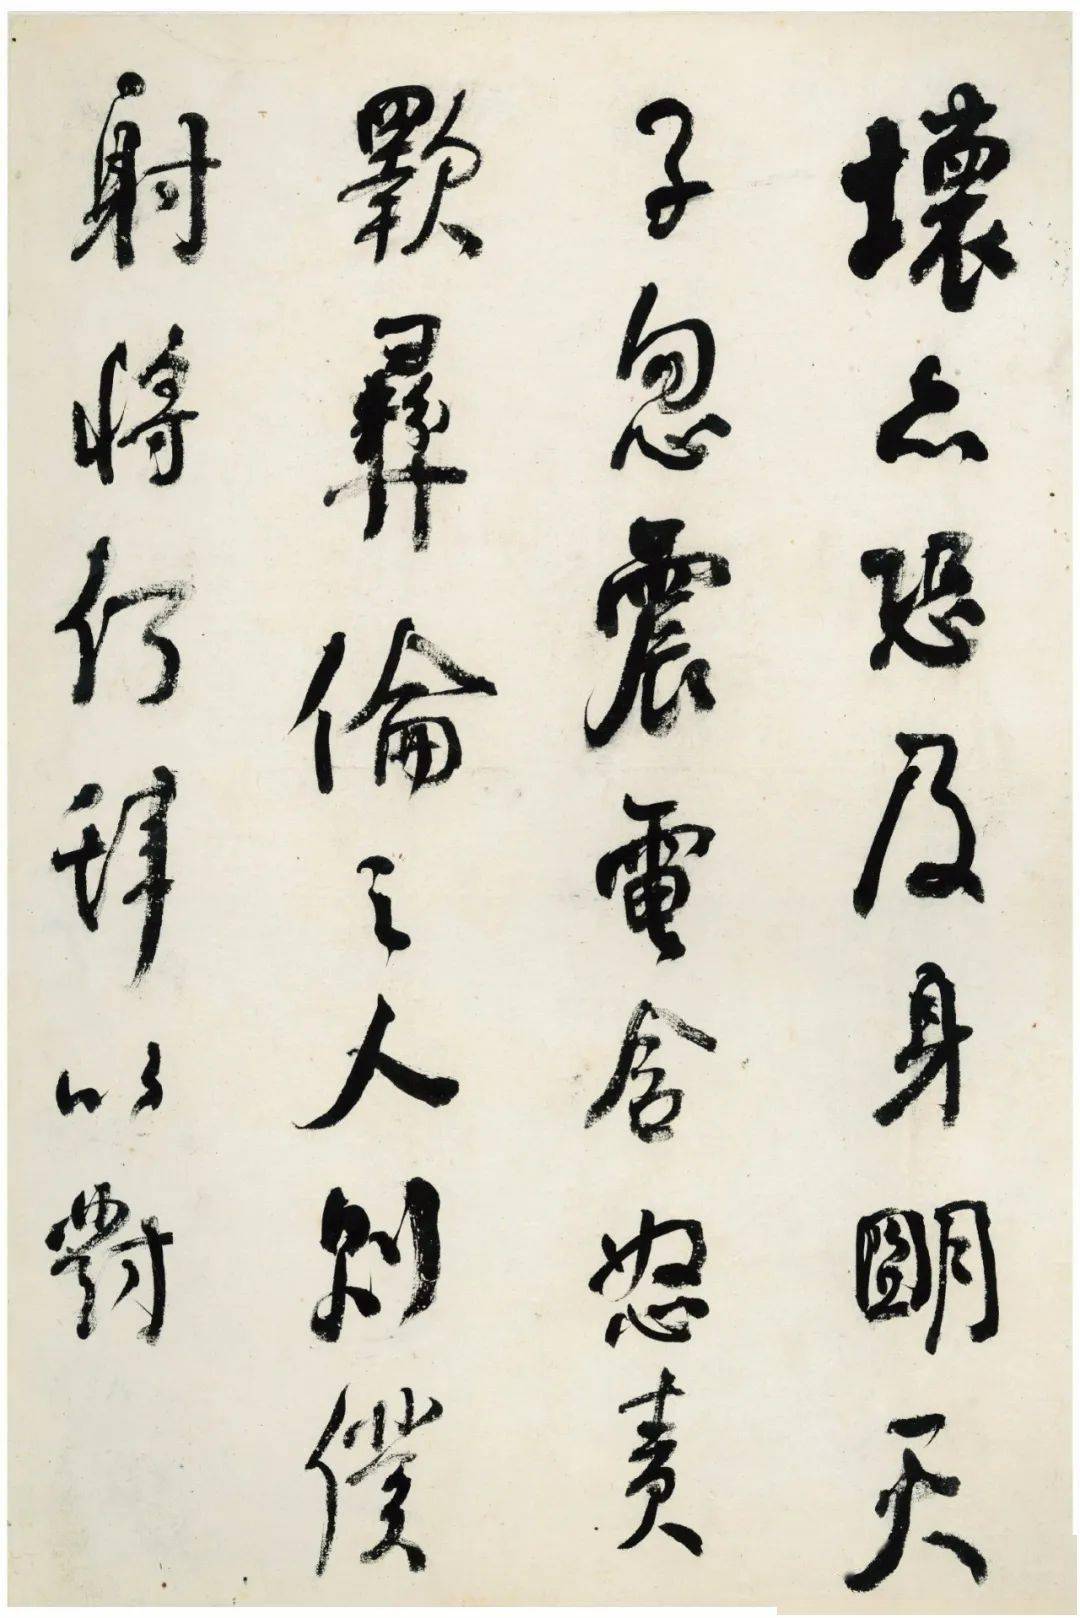 壞亦恐及身明天
子忽震電含怒責
歝彝倫之人則僕
射將何辭以對